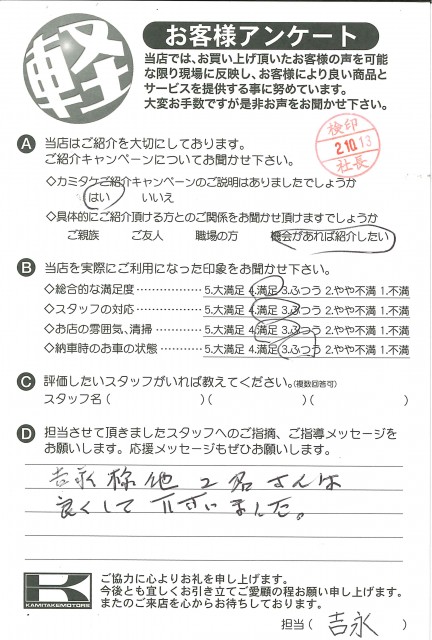 軽
お客様アンケート
当店では、お買い上げ頂いたお客様の声を可能
な限り現場に反映し、お客様により良い商品と
サービスを提供する事に努めています。
大変お手数ですが是非お声をお聞かせ下さい。
検印
210.13
社長
A 当店はご紹介を大切にしております。
ご紹介キャンペーンについてお聞かせ下さい。
◇カミタケご紹介キャンペーンのご説明はありましたでしょうか
はい いいえ
◇具体的にご紹介頂ける方とのご関係をお聞かせ頂けますでしょうか
ご親族 ご友人 職場の方 機会があれば紹介したい
B 当店を実際にご利用になった印象をお聞かせ下さい。
◇総合的な満足度 ‥‥‥‥‥‥ 5.大満足 4.満足 3.ふつう 2.やや不満 1.不満
◇スタッフの対応 ‥‥‥‥‥‥ 5.大満足 4.満足 3.ふつう 2.やや不満 1.不満
◇お店の雰囲気、清掃 ‥‥‥‥ 5.大満足 4.満足 3.ふつう 2.やや不満 1.不満
◇納車時のお車の状態 ‥‥‥‥ 5.大満足 4.満足 3.ふつう 2.やや不満 1.不満
C 評価したいスタッフがいれば教えてください。(複数回答可)
スタッフ名( )( )( )
D 担当させて頂きましたスタッフへのご指摘、ご指導メッセージを
お願いします。応援メッセージもぜひお願いします。
吉永様他2名さんは
良くして下さいました。
K
KAMITAKEMOTORS
ご協力に心よりお礼を申し上げます。
今後とも宜しくお引き立てご愛顧の程お願い申し上げます。
またのご来店を心からお待ちしております。
担当( 吉永 )